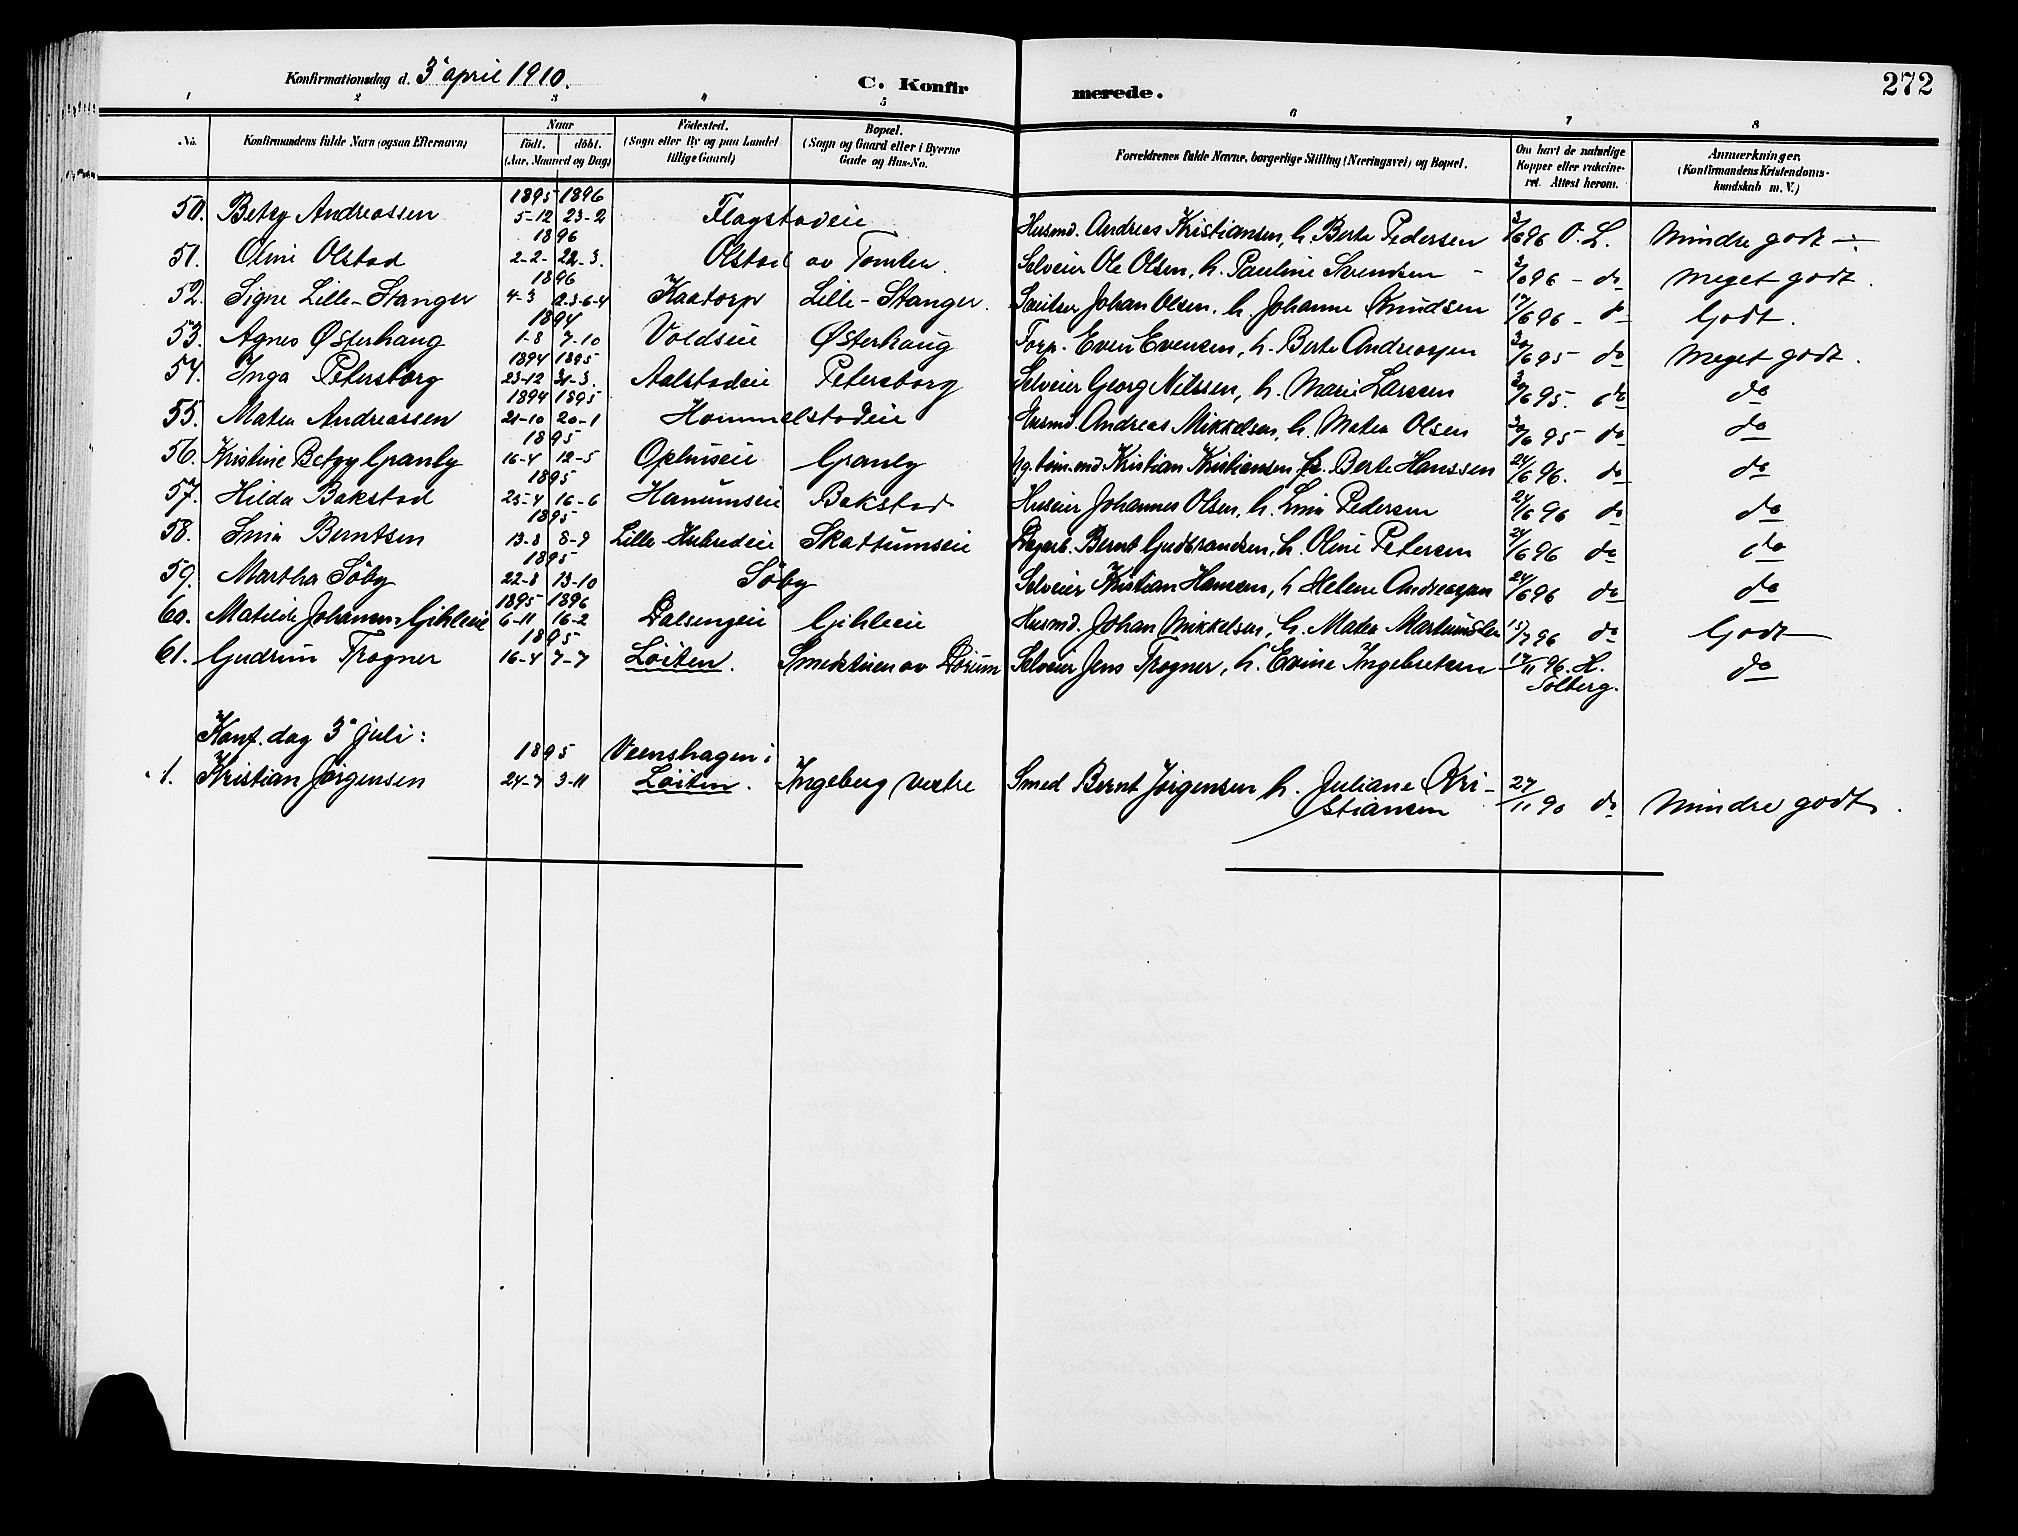 Konfirmationsdag d. 3' april 1910.
C. Konfirmerede.
272
1 2 3 4 5 6 7 8
No.
Konfirmandens fulde Navn (ogsaa Efternavn)
Naar
Födt. döbt.
(Aar, Maaned og Dag)
Födested.
(Sogn eller By og paa Landet
tillige Gaard)
Bopæl.
(Sogn og Gaard eller i Byerne
Gade og Hus-No.
Forældrenes fulde Navne, borgerlige Stilling (Næringsvei) og Bopæl.
Om havt de naturlige
Kopper eller vakcine-
ret. Attest herom.
Anmærkninger.
(Konfirmandens Kristendoms-
kundskab m. V.)
1895 1896
50. Betsy Andreassen 5-12 23-2 Flagstadeie Husmd. Andreas Kristiansen, h. Berte Pedersen 3/6 96 O. L. Mindre godt
1896
51. Oline Olstad 2-2 22-3. Olstad av Tomter. Selveier Ole Olsen, h. Pauline Svendsen 3/6 96 - do Meget godt.
1896
52. Signe Lille-Stanger 4-3 6-4 Kaatorp Lille-Stanger. Johan Olsen, h. Johanne Knudsen 17/6 96 - do Godt.
1894
53. Agnes Østerhaug 1-8 7-10 Voldseie Østerhaug Torp. Even Evensen, h. Berte Andreassen 30/6 95 do Meget godt.
1894 1895
54. Inga Petersborg 23-12 31-3. Aalstadeie Petersborg Selveier Georg Nilssen, h. Marie Larssen 30/6 95. do do
1894 1895
55. Matea Andreassen 21-10 20-1 Hommelstadeie Husmd. Andreas Mikkelsen, h. Matea Olsen 30/6 95 do do
1895
56. Kristine Betsy Granly 16-4 12-5 Ophuseie Granly Kristian Kristiansen h. Berte Hanssen 24/6 96. do do
1895
57. Hilda Bakstad 25-4 16-6 Hanumseie Bakstad Huseier Johannes Olsen, h. Lina Pedersen 24/6 96 do do
1895
58. Berntsen 13-8 8-9 Skattumseie Bernt Gudbrandsen, h. Oline Petersen 24/6 96 do do
1895
59. Martha Söby 22-8 13-10 Söby Selveier Kristian Hansen, h Helene Andreassen 24/6 96 do do
1895 1896
60. Matilde Johansen Gihleeie 6-11 16-2 Dalsengeie Gihleeie Husmd. Johan Mikkelsen, h. Matea Martinusden 15/7 96 do Godt
1895
61. Gudrun Trogner 16-4 7-7 Löiten. Smedstuen av Dörum Selveier Jens Trogner, h. Evine Ingebretsen 17/11 96. H.
Solberg. do
Konf. dag 3' juli:
1895 Veenshagen i
1. Kristian Jörgensen 24-7 3-11 Löiten. Ingeberg vestre Smed Bernt Jörgensen h. Juliane Kri-
stiansen 27/11 90 do Mindre godt.